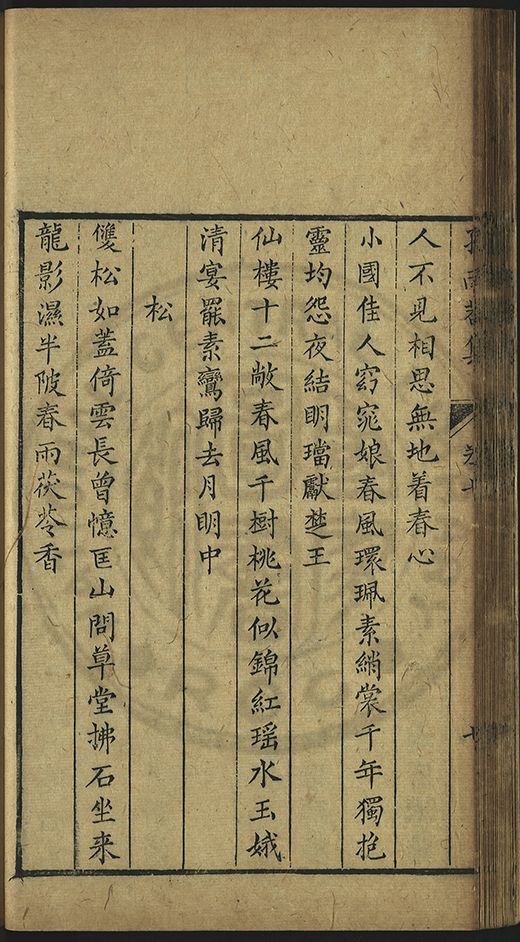 人不見相思無地着春心
小國佳人窈窕娘春風環珮素綃裳千年獨抱
靈均怨夜結明璫獻楚王
仙樓十二敞春風千樹桃花似錦紅瑶水玉娥
清宴罷素鸞歸去月明中
松
雙松如蓋倚雲長曾憶匡山問草堂拂石坐来
龍影濕半陂春雨茯苓香